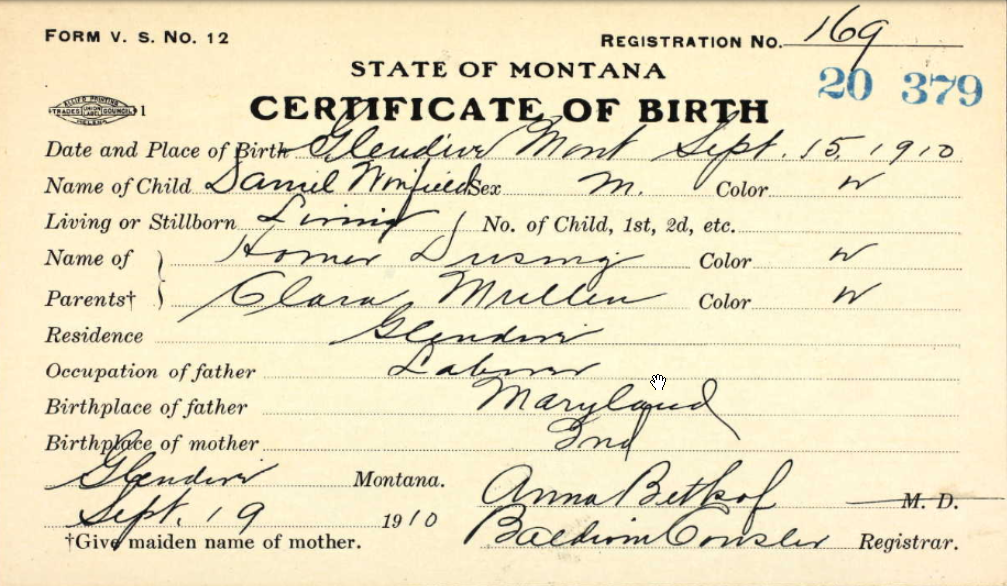 FORM V. S. NO. 12
REGISTRATION NO. 169
STATE OF MONTANA
20 379
ALLIED PRINTING
TRADES UNION LABEL COUNCIL
HELENA
1
CERTIFICATE OF BIRTH
Date and Place of Birth Glendive Mont Sept. 15, 1910
Name of Child Daniel Winfield Sex M. Color W
Living or Stillborn Living No. of Child, 1st, 2d, etc.
Name of Homer Dusing Color W
Parents† Clara Mullen Color W
Residence Glendive
Occupation of father Laborer
Birthplace of father Maryland
Birthplace of mother Ind
Glendive Montana.
Anna Betkof M. D.
Sept. 19 1910
Baldwin Consler Registrar.
†Give maiden name of mother.